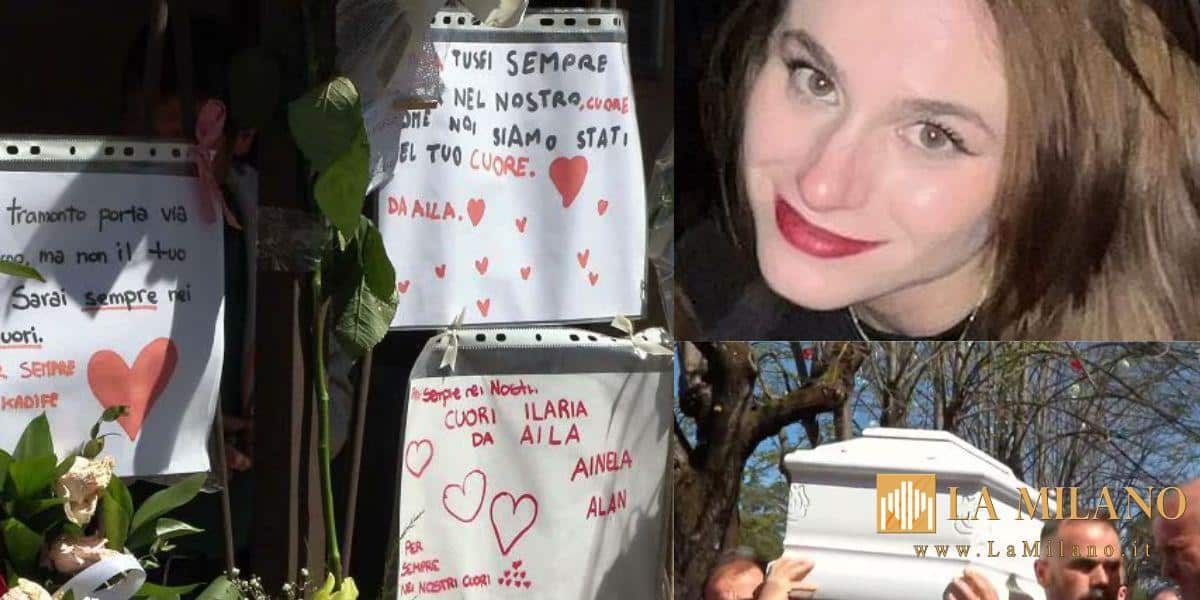 TU SEI SEMPRE
NEL NOSTRO, CUORE
OME NOI SIAMO STATI
EL TUO CUORE.
DA AILA.
tramonto porta via
rno, ma non il tuo
Sarai sempre nei
uori.
R SEMPRE
KADIFE
serpre nei Nostri
CUORI ILARIA
DA AILA
AINELA
ALAN
PER
SEMPRE
NEI NOSTRI CUORI
LA MILANO
www.LaMilano.it